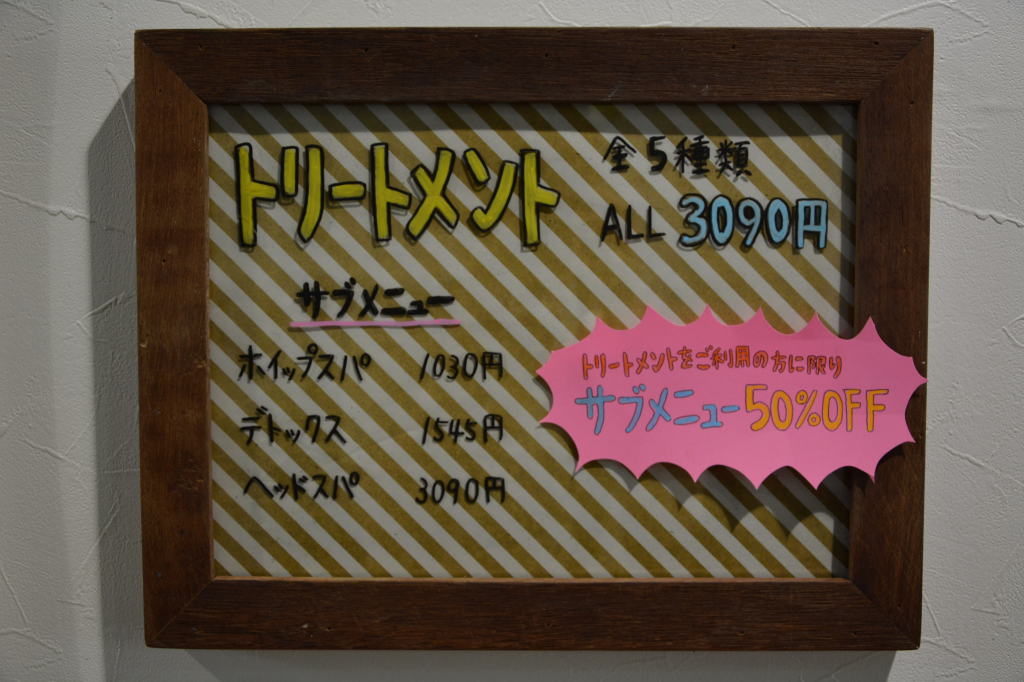 トリートメント
全5種類
ALL 3090円
サブメニュー
ホイップスパ 1030円
デトックス 1545円
ヘッドスパ 3090円
トリートメントをご利用の方に限り
サブメニュー50%OFF